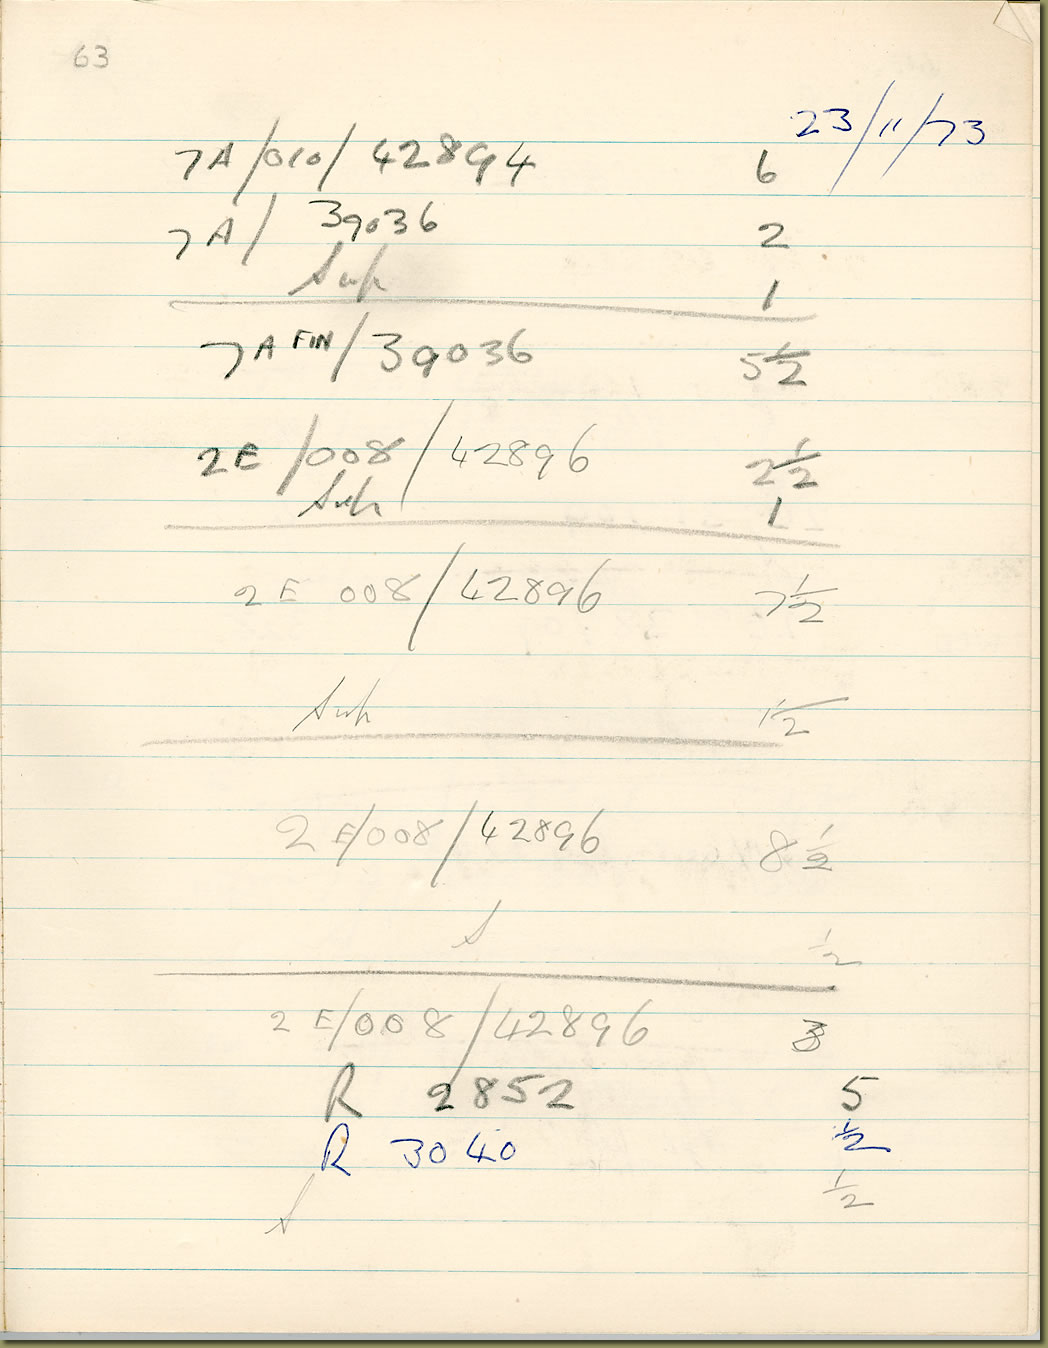 63
23/11/73
7A/010/ 42894 6
7A/ 39036 2
Sup 1
7A FIN/39036 5 1/2
2E/008/42896 2 1/2
Sup 1
2E 008/42896 7 1/2
Sup 1/2
2E/008/42896 8 1/2
S 1/2
2E/008/42896 3
R 2852 5
R 3040 1/2
S 1/2